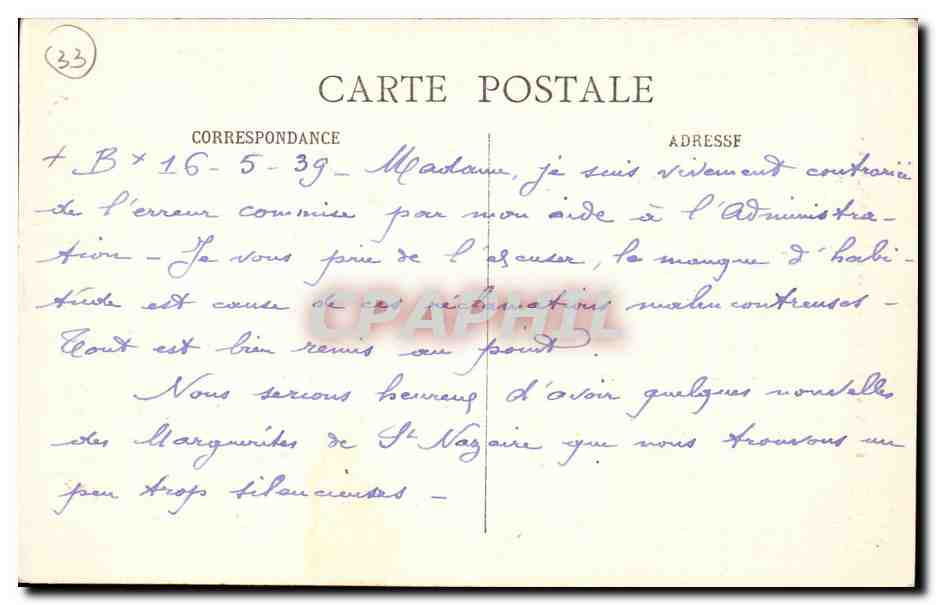 33
CARTE POSTALE
CORRESPONDANCE
ADRESSE
+ B x 16 - 5 - 39 - Madame, je suis vivement contrariée
de l'erreur commise par mon aide à l'Administra-
tion - Je vous prie de l'excuser, le manque d'habi-
tude est cause de ces réclamations malencontreuses -
Tout est bien remis au point.
Nous serions heureux d'avoir quelques nouvelles
des Marguerites de St Nazaire que nous trouvons un
peu trop silencieuses -
CPAPHIL